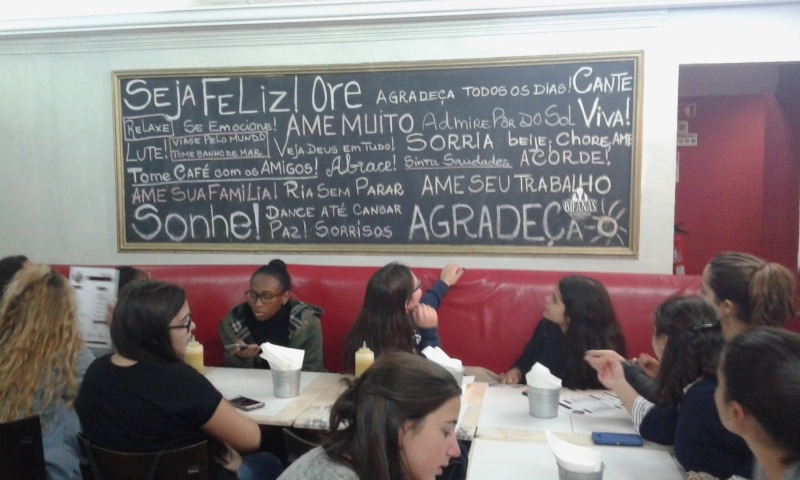 SEJA FELIZ! ORE AGRADEÇA TODOS OS DIAS! CANTE
RELAXE! SE EMOCIONE! AME MUITO ADMIRE PÔR DO SOL VIVA!
LUTE! VIAJE PELO MUNDO VEJA DEUS EM TUDO! SORRIA BEIJE, CHORE, AME
TOME BANHO DE MAR
TOME CAFÉ COM OS AMIGOS! Abrace! Sinta Saudades ACORDE!
AME SUA FAMÍLIA! RIA SEM PARAR AME SEU TRABALHO
Sonhe! DANCE ATÉ CANSAR AGRADEÇA
PAZ! SORRISOS
BIFANAS